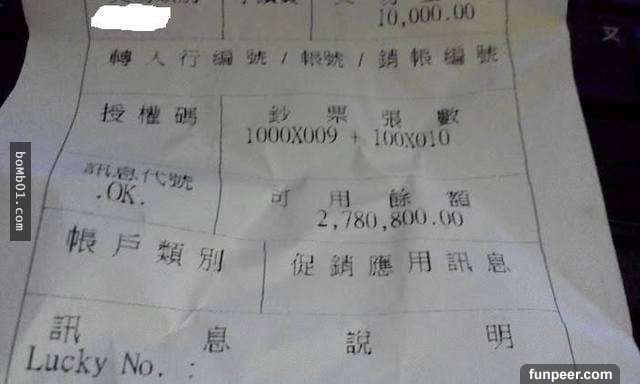 10,000.00
轉入行編號/帳號/銷帳編號
授權碼
鈔票張數
1000X009 + 100X010
訊息代號
.OK.
可用餘額
2,780,800.00
帳戶類別
促銷應用訊息
訊息說明
Lucky No. :
又
boMb01.com
funpeer.com